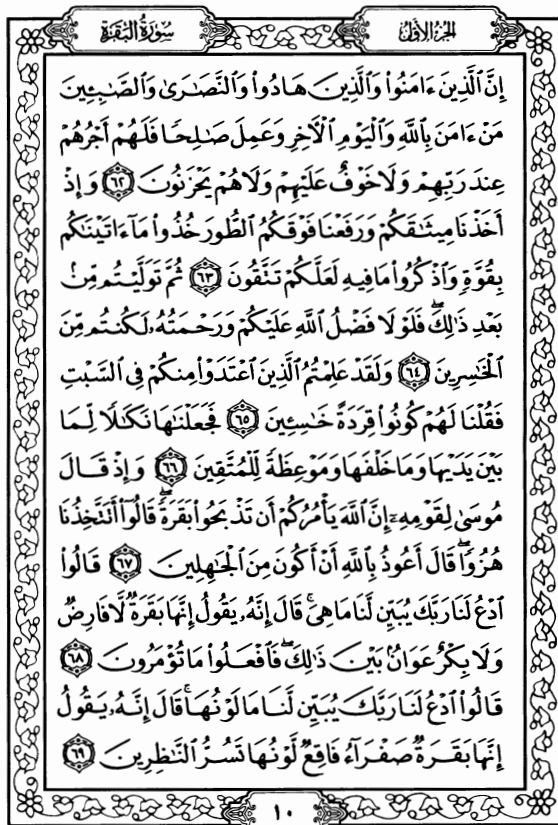 الجزء الأول
سورة البقرة
إِنَّ ٱلَّذِينَ ءَامَنُوا۟ وَٱلَّذِينَ هَادُوا۟ وَٱلنَّصَٰرَىٰ وَٱلصَّٰبِـِٔينَ
مَنْ ءَامَنَ بِٱللَّهِ وَٱلْيَوْمِ ٱلْءَاخِرِ وَعَمِلَ صَٰلِحًا فَلَهُمْ أَجْرُهُمْ
عِندَ رَبِّهِمْ وَلَا خَوْفٌ عَلَيْهِمْ وَلَا هُمْ يَحْزَنُونَ ٦٢ وَإِذْ
أَخَذْنَا مِيثَٰقَكُمْ وَرَفَعْنَا فَوْقَكُمُ ٱلطُّورَ خُذُوا۟ مَآ ءَاتَيْنَٰكُم
بِقُوَّةٍ وَٱذْكُرُوا۟ مَا فِيهِ لَعَلَّكُمْ تَتَّقُونَ ٦٣ ثُمَّ تَوَلَّيْتُم مِّنۢ
بَعْدِ ذَٰلِكَ ۖ فَلَوْلَا فَضْلُ ٱللَّهِ عَلَيْكُمْ وَرَحْمَتُهُۥ لَكُنتُم مِّنَ
ٱلْخَٰسِرِينَ ٦٤ وَلَقَدْ عَلِمْتُمُ ٱلَّذِينَ ٱعْتَدَوْا۟ مِنكُمْ فِى ٱلسَّبْتِ
فَقُلْنَا لَهُمْ كُونُوا۟ قِرَدَةً خَٰسِـِٔينَ ٦٥ فَجَعَلْنَٰهَا نَكَٰلًا لِّمَا
بَيْنَ يَدَيْهَا وَمَا خَلْفَهَا وَمَوْعِظَةً لِّلْمُتَّقِينَ ٦٦ وَإِذْ قَالَ
مُوسَىٰ لِقَوْمِهِۦٓ إِنَّ ٱللَّهَ يَأْمُرُكُمْ أَن تَذْبَحُوا۟ بَقَرَةً ۖ قَالُوٓا۟ أَتَتَّخِذُنَا
هُزُوًا ۖ قَالَ أَعُوذُ بِٱللَّهِ أَنْ أَكُونَ مِنَ ٱلْجَٰهِلِينَ ٦٧ قَالُوا۟
ٱدْعُ لَنَا رَبَّكَ يُبَيِّن لَّنَا مَا هِىَ ۚ قَالَ إِنَّهُۥ يَقُولُ إِنَّهَا بَقَرَةٌ لَّا فَارِضٌ
وَلَا بِكْرٌ عَوَانٌۢ بَيْنَ ذَٰلِكَ ۖ فَٱفْعَلُوا۟ مَا تُؤْمَرُونَ ٦٨
قَالُوا۟ ٱدْعُ لَنَا رَبَّكَ يُبَيِّن لَّنَا مَا لَوْنُهَا ۚ قَالَ إِنَّهُۥ يَقُولُ
إِنَّهَا بَقَرَةٌ صَفْرَآءُ فَاقِعٌ لَّوْنُهَا تَسُرُّ ٱلنَّٰظِرِينَ ٦٩
١٠